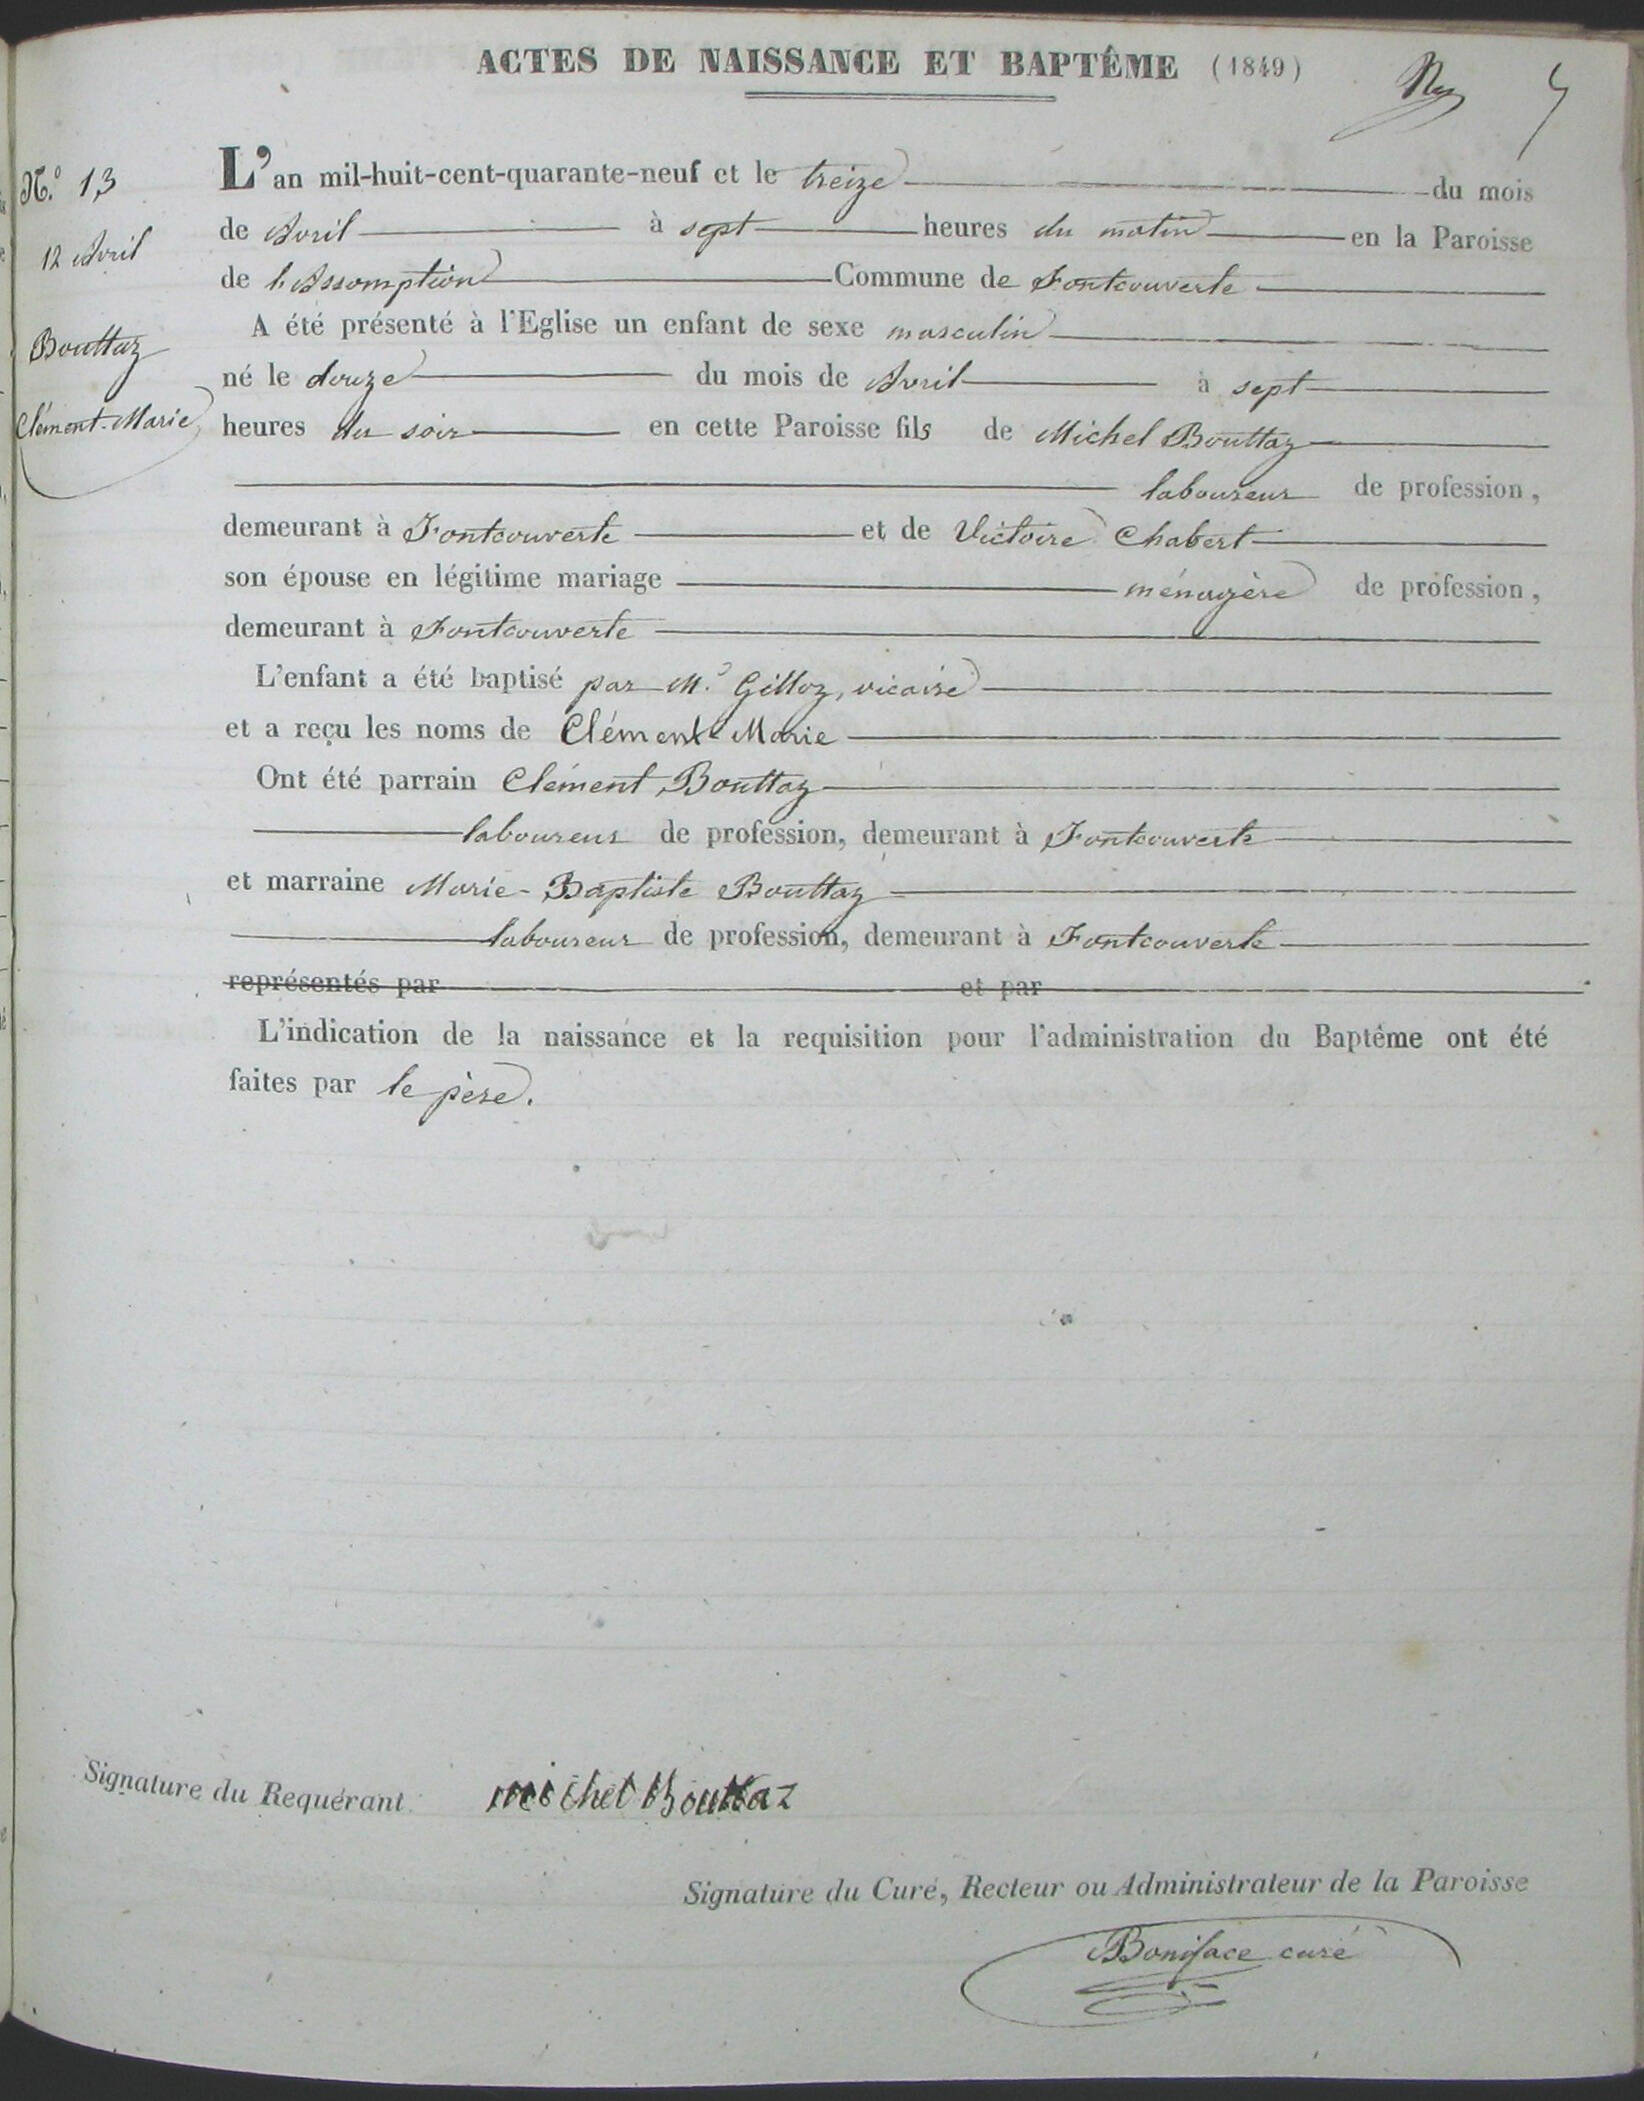 ACTES DE NAISSANCE ET BAPTÊME (1849)
N.o 13
12 Avril
Bouttaz
Clément-Marie
L'an mil-huit-cent-quarante-neuf et le treize du mois
de Avril à sept heures du matin en la Paroisse
de l'Assomption Commune de Fontcouverte
A été présenté à l'Eglise un enfant de sexe masculin
né le douze du mois de Avril à sept
heures du soir en cette Paroisse fils de Michel Bouttaz
laboureur de profession,
demeurant à Fontcouverte et de Victoire Chabert
son épouse en légitime mariage ménagère de profession,
demeurant à Fontcouverte
L'enfant a été baptisé par M.r Gilloz, vicaire
et a reçu les noms de Clément-Marie
Ont été parrain Clément Bouttaz
laboureur de profession, demeurant à Fontcouverte
et marraine Marie-Baptiste Bouttaz
laboureur de profession, demeurant à Fontcouverte
représentés par et par
L'indication de la naissance et la requisition pour l'administration du Baptême ont été
faites par le père.
Signature du Requérant michel Bouttaz
Signature du Curé, Recteur ou Administrateur de la Paroisse
Boniface curé